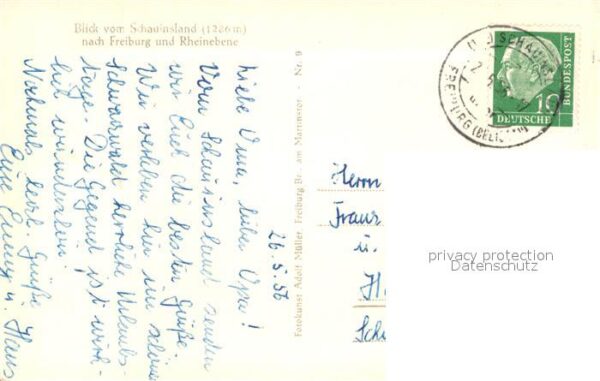 Blick vom Schauinsland (1286 m)
nach Freiburg und Rheinebene
26.5.56
Liebe Oma, lieber Opa!
Vom Schauinsland senden
wir Euch die besten Grüße.
Wir verleben hier im schönen
Schwarzwald herrliche Urlaubs-
tage. Die Gegend ist wirk-
lich wunderschön.
Nochmals herzl. Grüße
Eure Emmy u. Hans
Fotokunst Adolf Müller, Freiburg Br. am Martinstor - Nr. 9
Herrn
Franz
u.
SCHAUINS
FREIBURG (BREISGAU)
10
DEUTSCHE
BUNDESPOST
privacy protection
Datenschutz